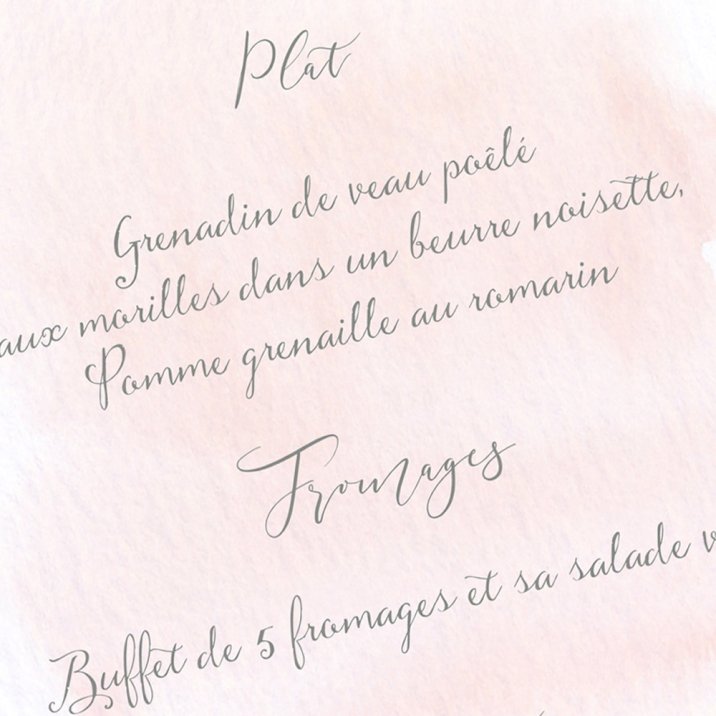 Plat
Grenadin de veau poêlé
aux morilles dans un beurre noisette,
Pomme grenaille au romarin
Fromages
Buffet de 5 fromages et sa salade